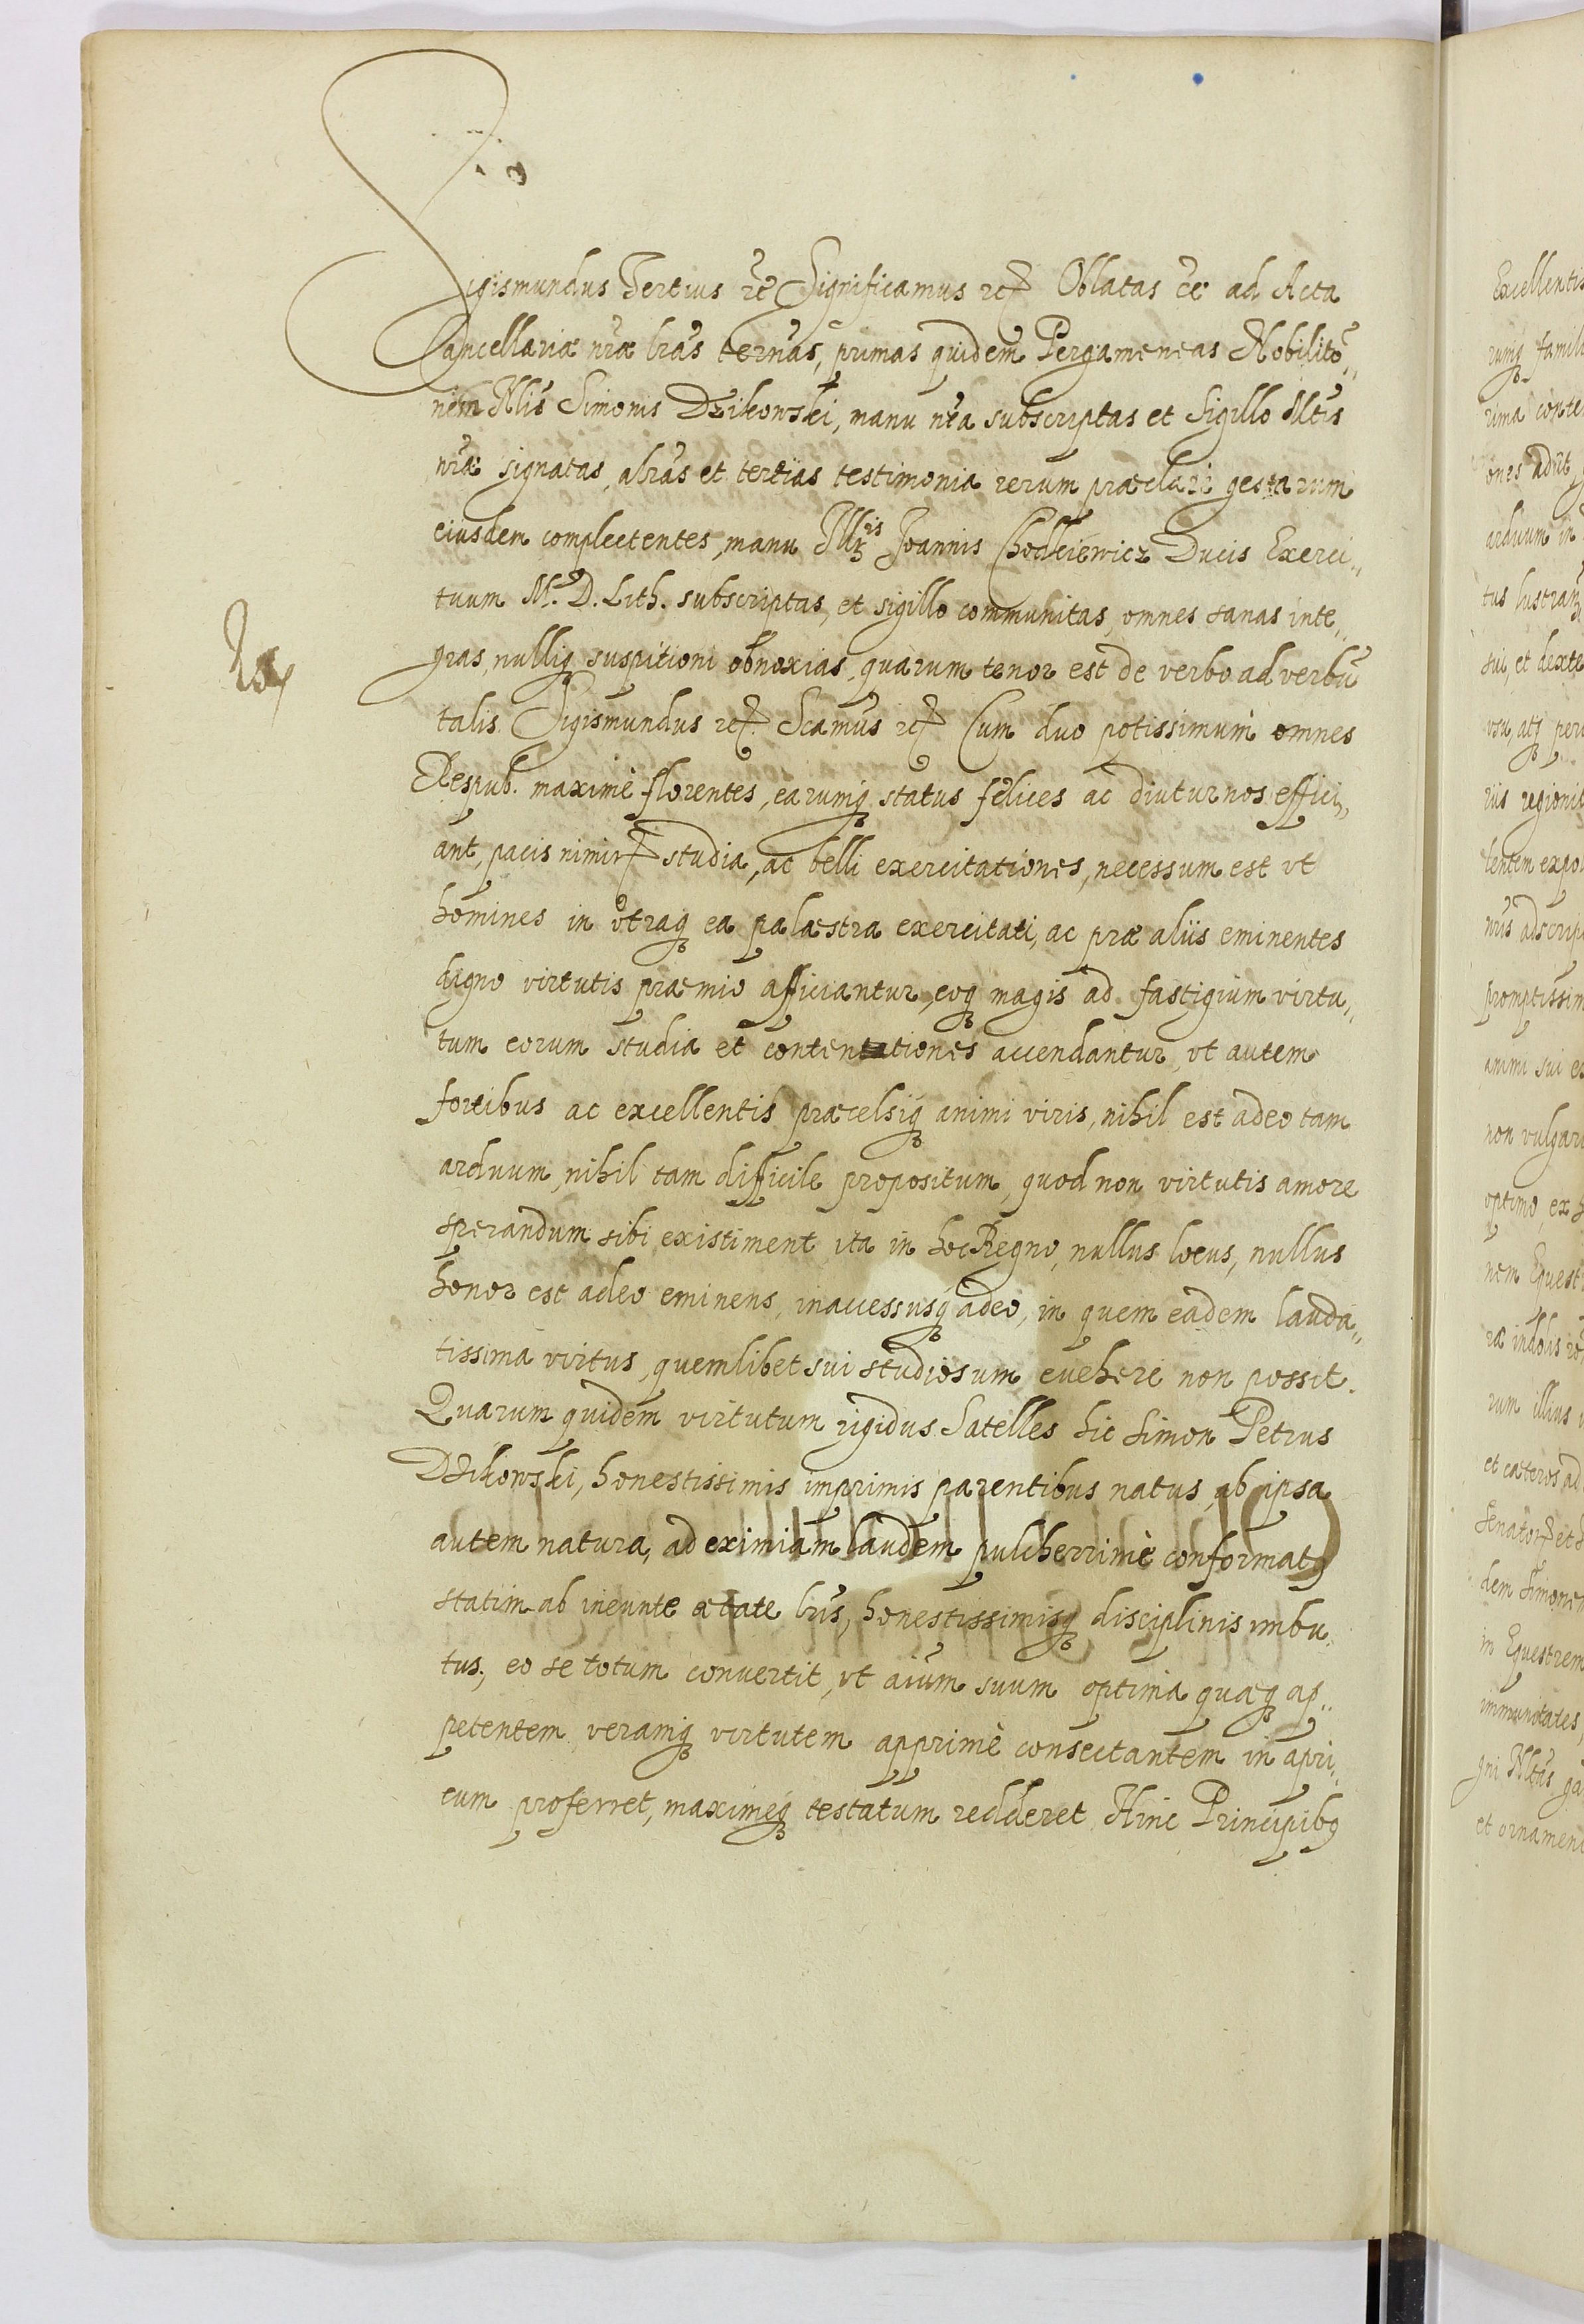 Sigismundus Tertius etc Significamus etc Oblatas ee ad Acta
Cancellariæ nræ lras ternas, primas quidem Pergameneas Nobilito„
nem Nlis Simonis Dzikowski, manu nra subscriptas et Sigillo Mtis
nræ signatas, alras et tertias testimonia rerum præclare gestarum
eiusdem complectentes, manu Illris Joannis Chodkiewicz Ducis Exerci„
tuum M. D. Lith. subscriptas, et sigillo communitas, omnes sanas inte„
gras, nulliq suspitioni obnoxias, quarum tenor est de verbo ad verbū
talis. Sigismundus etc Scamus etc Cum duo potissimum omnes
Respub. maximè florentes, earumq status felices ac diuturnos effici„
ant, pacis nimir studia, ac belli exercitationes, necessum est vt
homines in vtraq ea palæstra exercitati, ac præ aliis eminentes
digno virtutis præmio afficiantur, eoq magis ad fastigium virtu„
tum eorum studia et contentationes accendantur, vt autem
fortibus ac excellentis præcelsiq animi viris, nihil est adeo tam
arduum, nihil tam difficile propositum, quod non virtutis amore
sperandum sibi existiment, ita in hoc Regno, nullus locus, nullus
honor est adeo eminens, inaccessusq adeo, in quem eadem lauda„
tissima virtus, quemlibet sui studiosum euehere non possit.
Quarum quidem virtutum rigidus Satelles hic Simon Petrus
Dzikowski, honestissimis imprimis parentibus natus, ab ipsa
autem natura, ad eximiam laudem pulcherrimè conformatq
statim ab ineunte ætate lris, honestissimisq disciplinis imbu„
tus, eo se totum conuertit, vt aium suum optima quæq ap„
petentem, veramq virtutem apprimè consectantem in apri„
cum proferret, maximeq testatum redderet Hinc Principibq